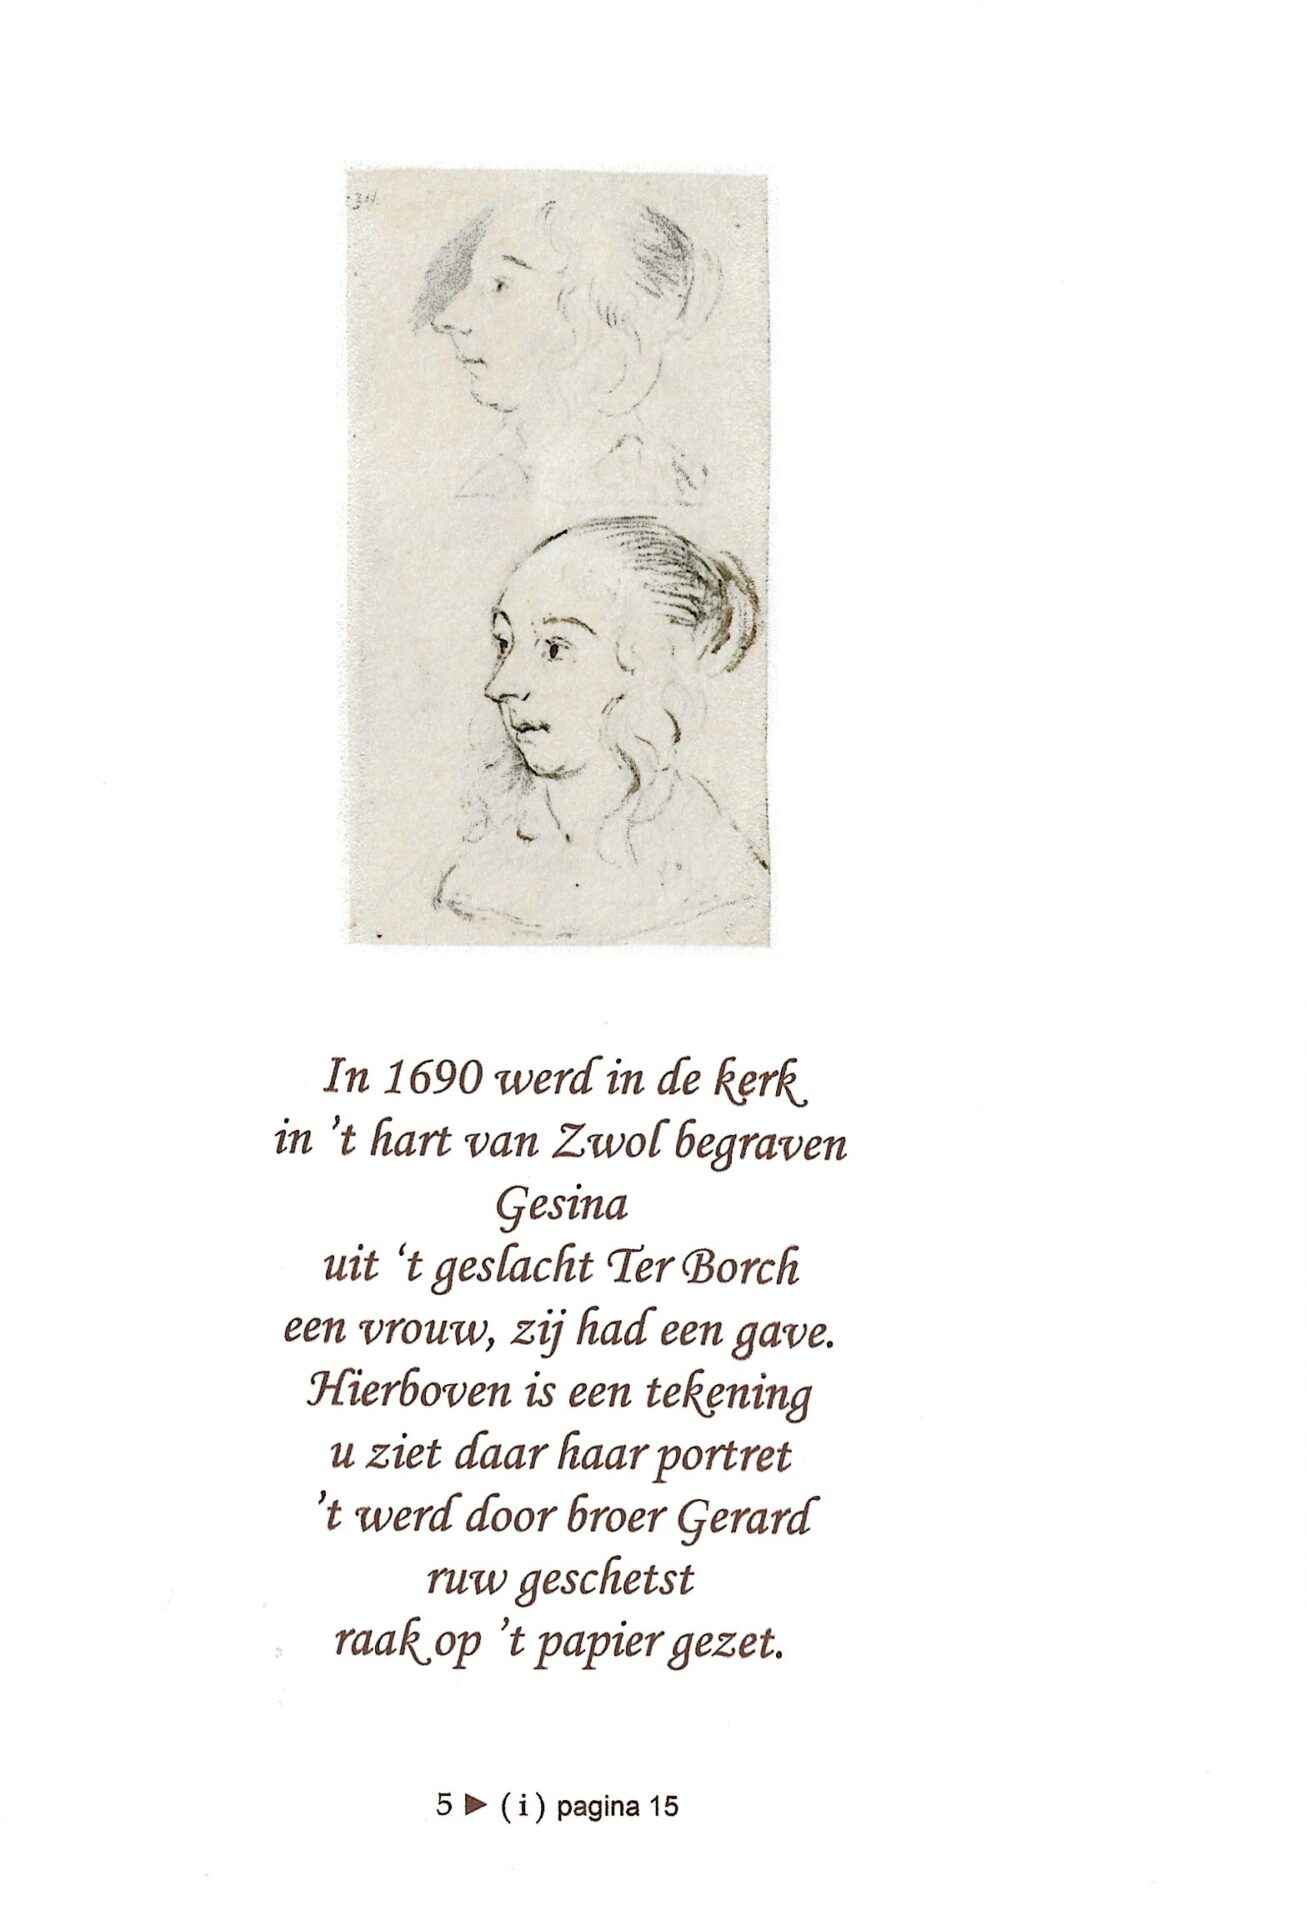 In 1690 werd in de kerk
in ’t hart van Zwol begraven
Gesina
uit ‘t geslacht Ter Borch
een vrouw, zij had een gave.
Hierboven is een tekening
u ziet daar haar portret
’t werd door broer Gerard
ruw geschetst
raak op ’t papier gezet.
5 ► (i) pagina 15